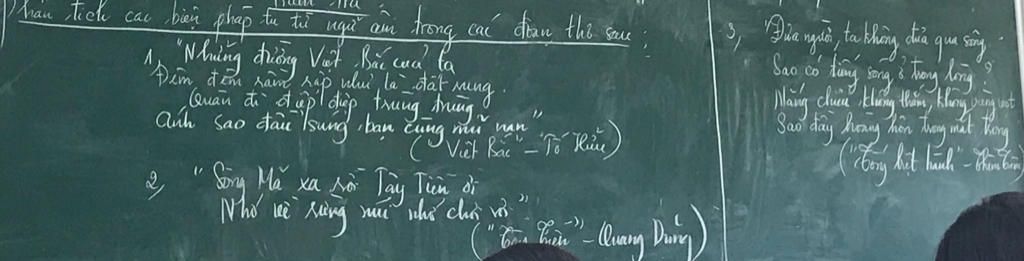 Phân tích các biện pháp tu từ ngữ âm trong các đoạn thơ sau:
1, "Những đường Việt Bắc của ta
Đêm đêm rầm rập như là đất rung.
Quân đi điệp điệp trùng trùng
Ánh sao đầu súng, bạn cùng mũ nan"
("Việt Bắc" - Tố Hữu)
2, "Sông Mã xa rồi Tây Tiến ơi
Nhớ về rừng núi nhớ chơi vơi"
("Tây Tiến" - Quang Dũng)
3, "Đưa người, ta không đưa qua sông
Sao có tiếng sóng ở trong lòng?
Nắng chiều không thắm, không vàng vọt
Sao đầy hoàng hôn trong mắt trong
("Tống biệt hành" - Thâm Tâm)